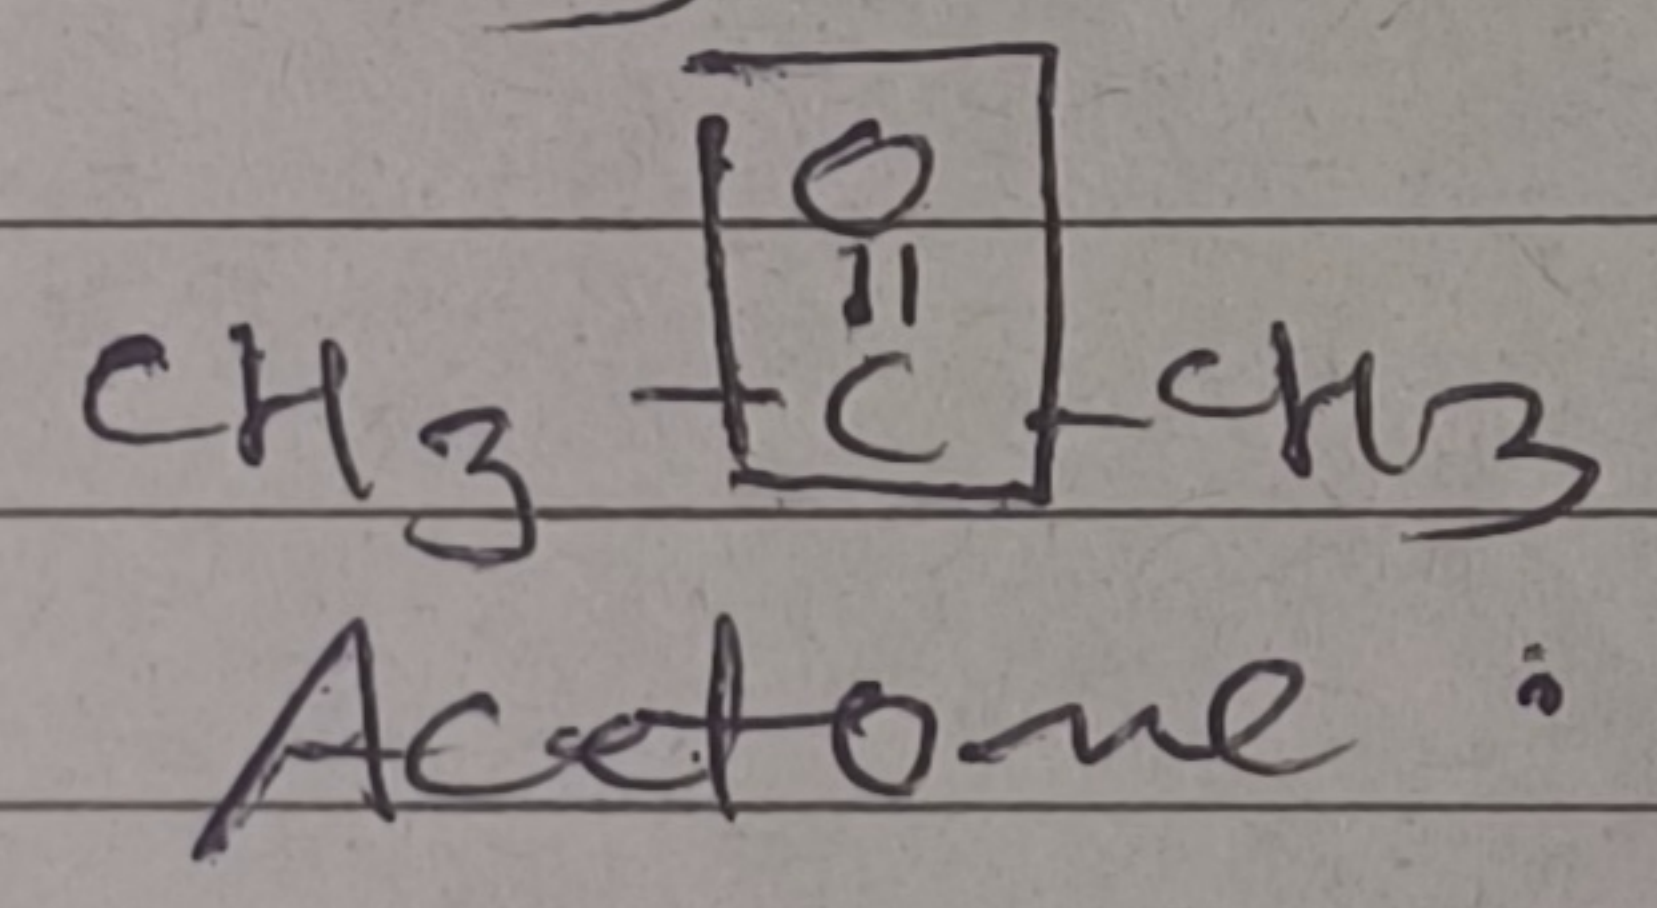 O
||
CH3 - C - CH3
Acetone